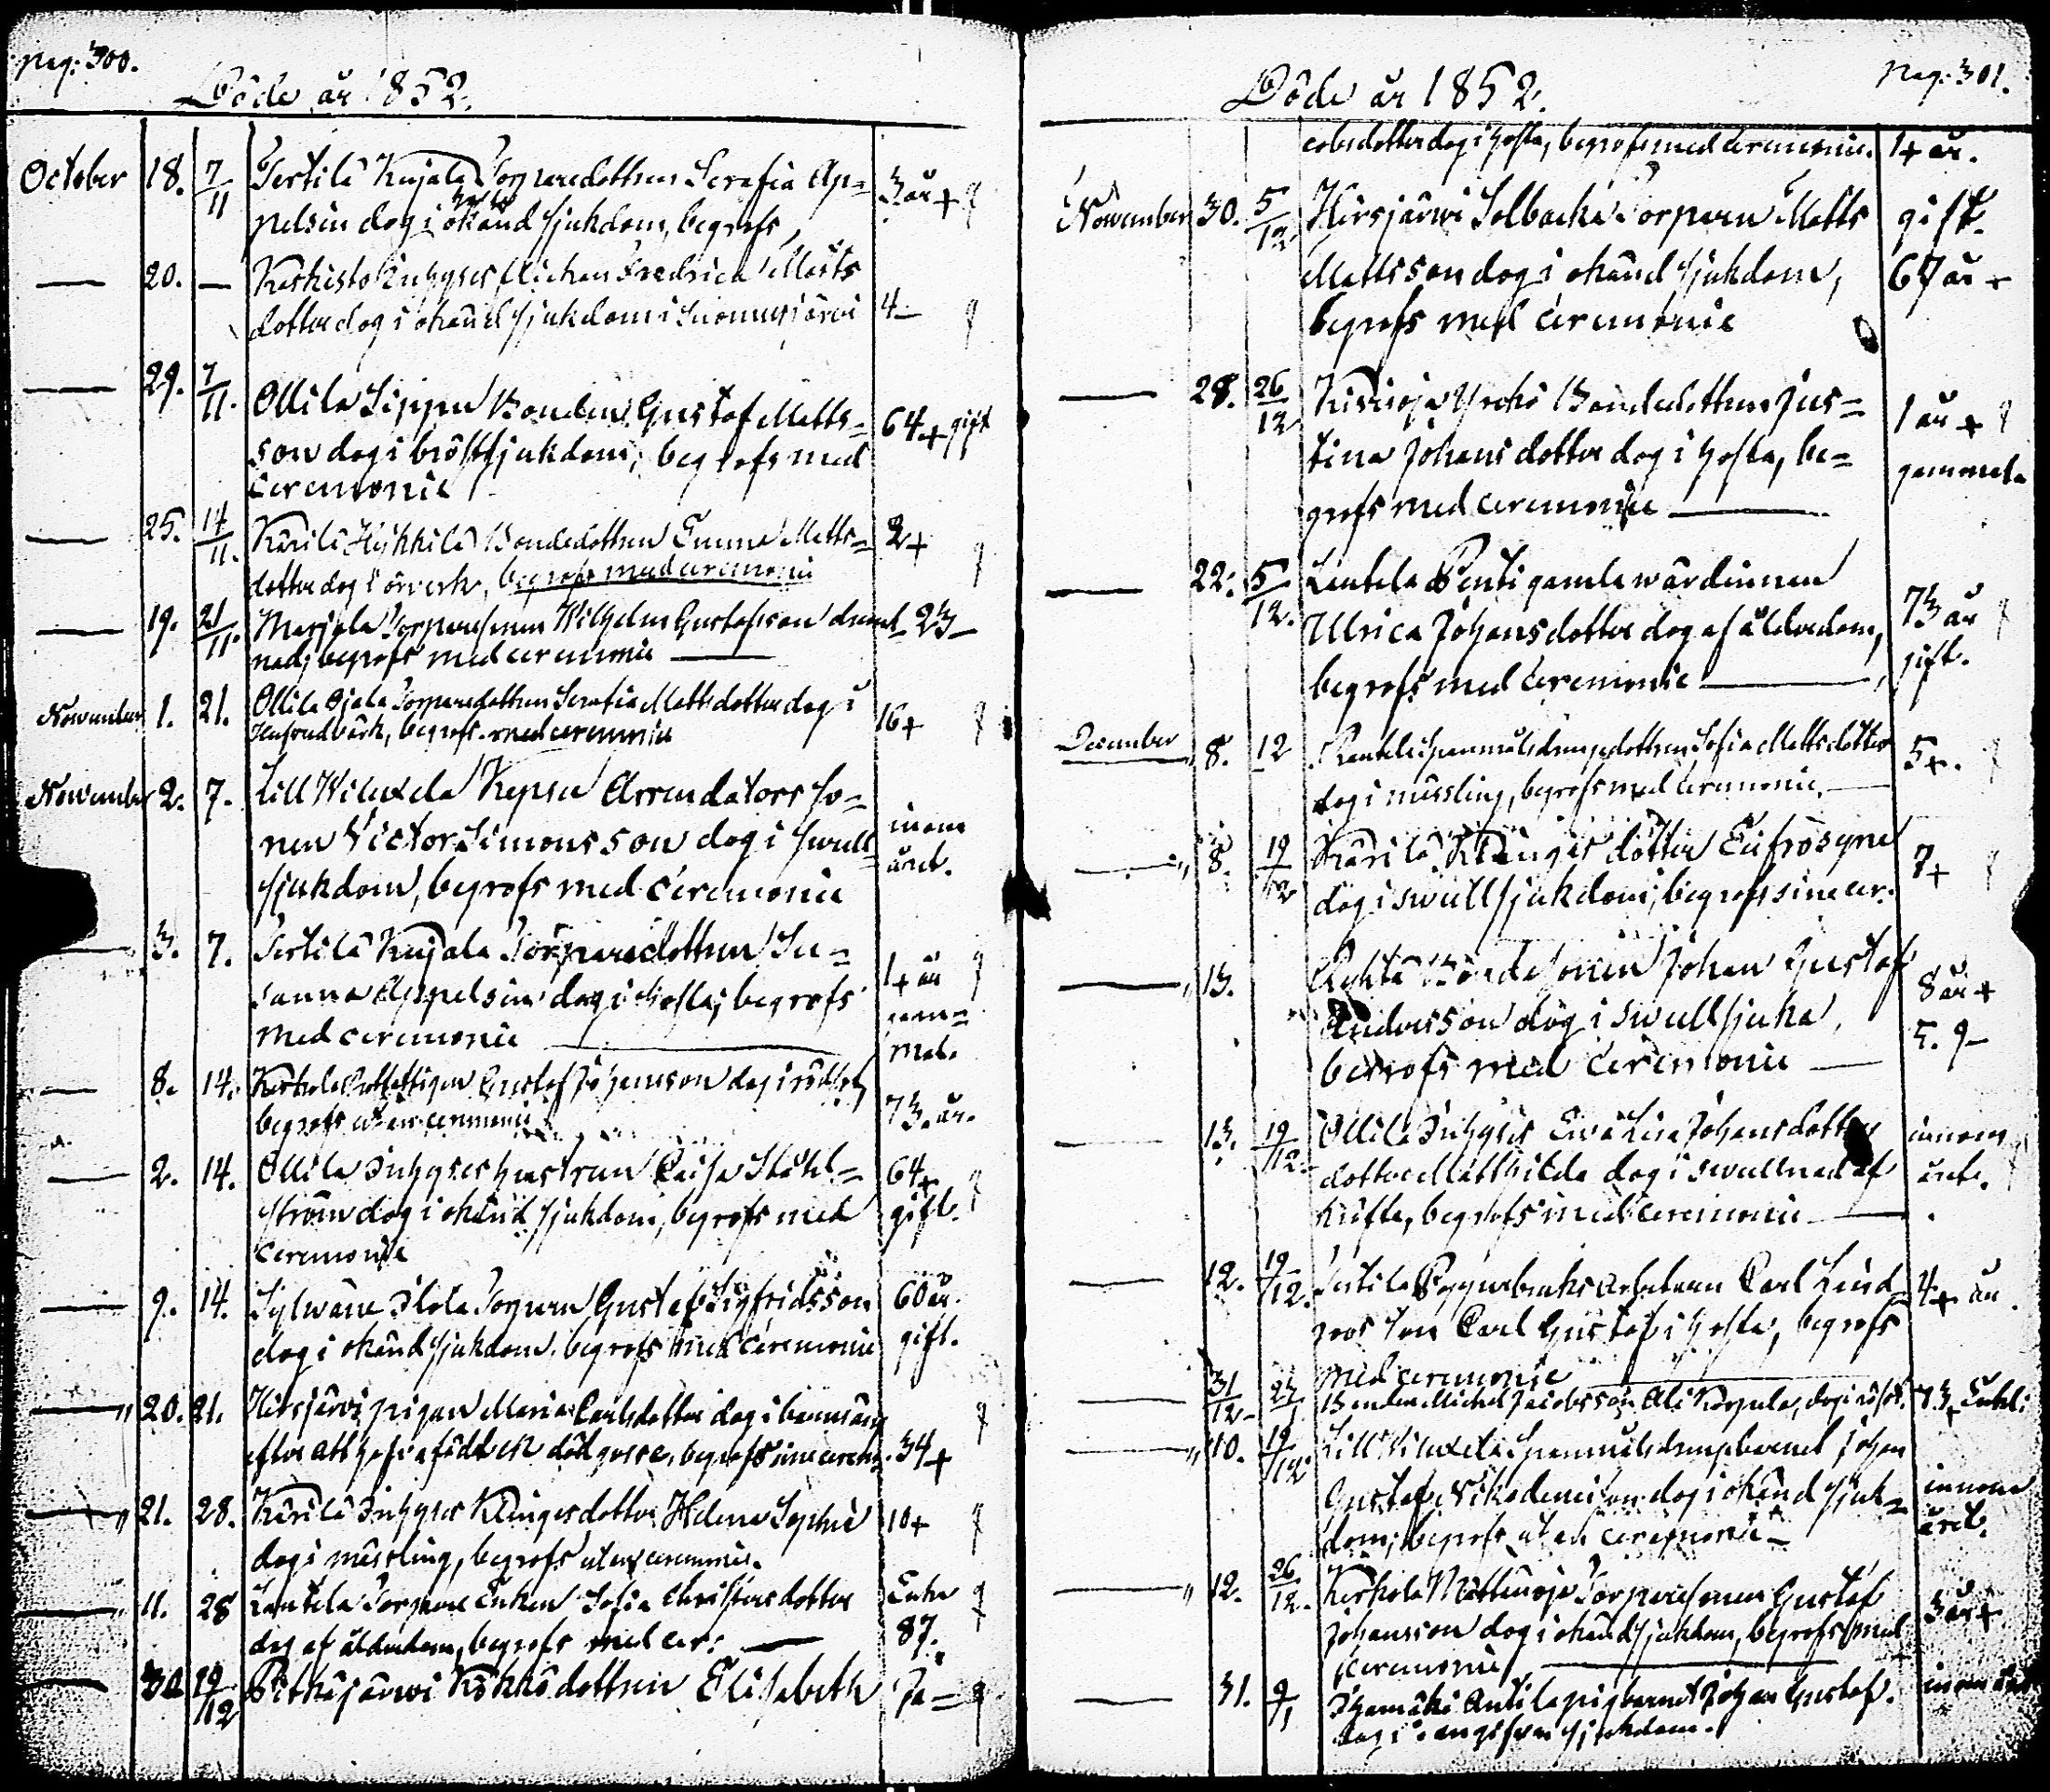 Pag: 300.
Döde år 1852.
October 18. 7/11 Sertilä Kujala Torparedottren Serafia Ap= 3 år +
pelsin dog i okänd sjukdom, begrofs,
— 20. — Kerkisto Flickan Fredrica Matts
dotter dog i okänd sjukdom i Suomusjärwi 4 —
— 29. 7/11. Ollila Sippu Bonden Gustaf Matts= 64 + gift
son dog i bröstsjukdom, begrofs med
ceremonie
— 25. 14/11. Kärilä Hykkilä Bondedottren Emma Matts= 2 +
dotter dog i örverk, begrofs med ceremonie
— 19. 21/11. Marjala Torparesonen Wilhelm Gustafsson drunk 23 —
nad, begrofs med ceremonie —
November 1. 21. Ollila Ojala Torparedottren Serafia Mattsdotter dog i 16 +
begrofs med ceremonie
November 2. 7. Lill Wiluxela Kepsu Arrendators so= inom
nen Victor Simonsson dog i swull= året.
sjukdom, begrofs med ceremonie
— 3. 7. Sertilä Kujala Torparedottren Su= 1 + år
sanna Appelsin dog i hosta, begrofs gam=
med ceremonie — mal.
— 8. 14. Kerkola Gustaf Johansson dog i rödsot,
begrofs utan ceremonie 73. år.
— 2. 14. Ollila Inhyses hustrun Caisa Ståhl= 64 +
ström dog i okänd sjukdom, begrofs med gift.
ceremonie
— 9. 14. Sylwäne Torparen Gustaf Sigfridsson 60 år.
dog i okänd sjukdom, begrofs med ceremonie gift.
— 20. 21. Hirsjärwi pigan Maria Carlsdotter dog i barnsäng
efter att hafva födt en död gosse, begrofs sine cerem. 34 +
— 21. 28. Kärilä Inhyses Klingesdotter Helena Sophia 10 +
dog i messling, begrofs utan ceremonie.
— 11. 28 Lautela Torpare Enkan Sofia Christersdotter Enka
dog af ålderdom, begrofs med cer: — 87.
— 30 19/12 Pitkäjärwi Kökkö dottren Elisabeth Ja=
Pag: 301.
Döde år 1852.
cobsdotter dog i hosta, begrofs med ceremonie. 1 + år.
November 30. 5/12 Hirsjärwi Solbacka Torparen Matts gift.
Mattsson dog i okänd sjukdom, 67 år
begrofs med ceremonie
— 28. 26/12 Kisrioja Yrckö Bondedottren Jus= 1 år +
tina Johansdotter dog i hosta, be= gammal.
grofs med ceremonie —
— 22. 5/12. Lautela Penti gamla wärdinnan
Ulrica Johansdotter dog af ålderdom, 73 år
begrofs med ceremonie — gift.
December 8. 12 Sofia Mattsdotter 5 +.
dog i messling, begrofs med ceremonie. —
— 8. 19/12 Kärilä Klinges dotter Eufrosyne 7 +
dog i swullsjukdom, begrofs sine cer.
— 13. Bondesonen Johan Gustaf 8 år +
Andersson dog i swullsjuka,
begrofs med ceremonie —
— 13. 19/12. Ollila Inhyses Ewa Lisa Johansdotters innom
dotter Mathilda dog i swullnad af året.
begrofs med ceremonie —
— 12. 19/12. Sertilä Pappersbruks Arbetaren Carl Lind 4 + år
roos son Carl Gustaf i hosta, begrofs
med ceremonie —
— 31/12 23/1 Bonden Michel Jacobsson Ali Körpula, dog i 73 Enkl:
— 10. 19/12 Lill Wiluxela Johan
Gustaf Nikodemsson dog i okänd sjuk= innom
dom, begrofs utan ceremonie — året.
— 12. 26/12. Kerkola Mattinoja Torparesonen Gustaf
Johansson dog i okänd sjukdom, begrofs med 3 år +
ceremonie —
— 31. 9/1 Antila pigbarnet Johan Gustaf. innom året
dog i sjukdom.